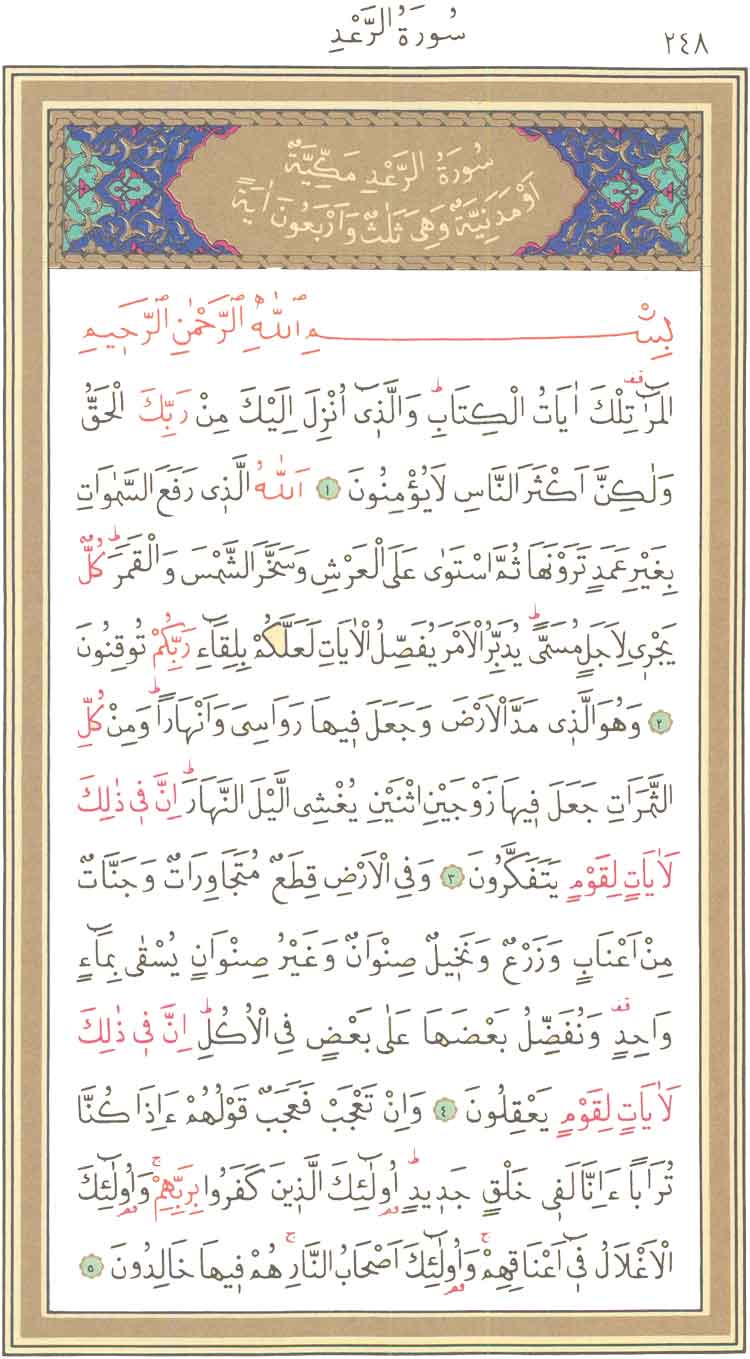 سُورَةُ الرَّعْدِ
٢٤٨
سُورَةُ الرَّعْدِ مَكِّيَّةٌ
اَوْ مَدَنِيَّةٌ وَهِيَ ثَلٰثٌ وَاَرْبَعُونَ اٰيَةً
بِسْمِ اللّٰهِ الرَّحْمٰنِ الرَّحٖيمِ
الٓمٓرٰ تِلْكَ اٰيَاتُ الْكِتَابِؕ وَالَّذٖٓى اُنْزِلَ اِلَيْكَ مِنْ رَبِّكَ الْحَقُّ
وَلٰكِنَّ اَكْثَرَ النَّاسِ لَايُؤْمِنُونَ ﴿١﴾ اَللّٰهُ الَّذٖى رَفَعَ السَّمٰوَاتِ
بِغَيْرِ عَمَدٍ تَرَوْنَهَا ثُمَّ اسْتَوٰى عَلَى الْعَرْشِ وَسَخَّرَ الشَّمْسَ وَالْقَمَرَؕ كُلٌّ
يَجْرٖى لِاَجَلٍ مُسَمًّىؕ يُدَبِّرُ الْاَمْرَ يُفَصِّلُ الْاٰيَاتِ لَعَلَّكُمْ بِلِقَٓاءِ رَبِّكُمْ تُوقِنُونَ
﴿٢﴾ وَهُوَ الَّذٖى مَدَّ الْاَرْضَ وَجَعَلَ فٖيهَا رَوَاسِىَ وَاَنْهَاراًؕ وَمِنْ كُلِّ
الثَّمَرَاتِ جَعَلَ فٖيهَا زَوْجَيْنِ اثْنَيْنِ يُغْشِى الَّيْلَ النَّهَارَؕ اِنَّ فٖى ذٰلِكَ
لَاٰيَاتٍ لِقَوْمٍ يَتَفَكَّرُونَ ﴿٣﴾ وَفِى الْاَرْضِ قِطَعٌ مُتَجَاوِرَاتٌ وَجَنَّاتٌ
مِنْ اَعْنَابٍ وَزَرْعٌ وَنَخٖيلٌ صِنْوَانٌ وَغَيْرُ صِنْوَانٍ يُسْقٰى بِمَٓاءٍ
وَاحِدٍ وَنُفَضِّلُ بَعْضَهَا عَلٰى بَعْضٍ فِى الْاُكُلِؕ اِنَّ فٖى ذٰلِكَ
لَاٰيَاتٍ لِقَوْمٍ يَعْقِلُونَ ﴿٤﴾ وَاِنْ تَعْجَبْ فَعَجَبٌ قَوْلُهُمْ ءَاِذَا كُنَّا
تُرَاباً ءَاِنَّا لَفٖى خَلْقٍ جَدٖيدٍؕ اُولٰٓئِكَ الَّذٖينَ كَفَرُوا بِرَبِّهِمْۚ وَاُولٰٓئِكَ
الْاَغْلَالُ فٖٓى اَعْنَاقِهِمْۚ وَاُولٰٓئِكَ اَصْحَابُ النَّارِۚ هُمْ فٖيهَا خَالِدُونَ ﴿٥﴾